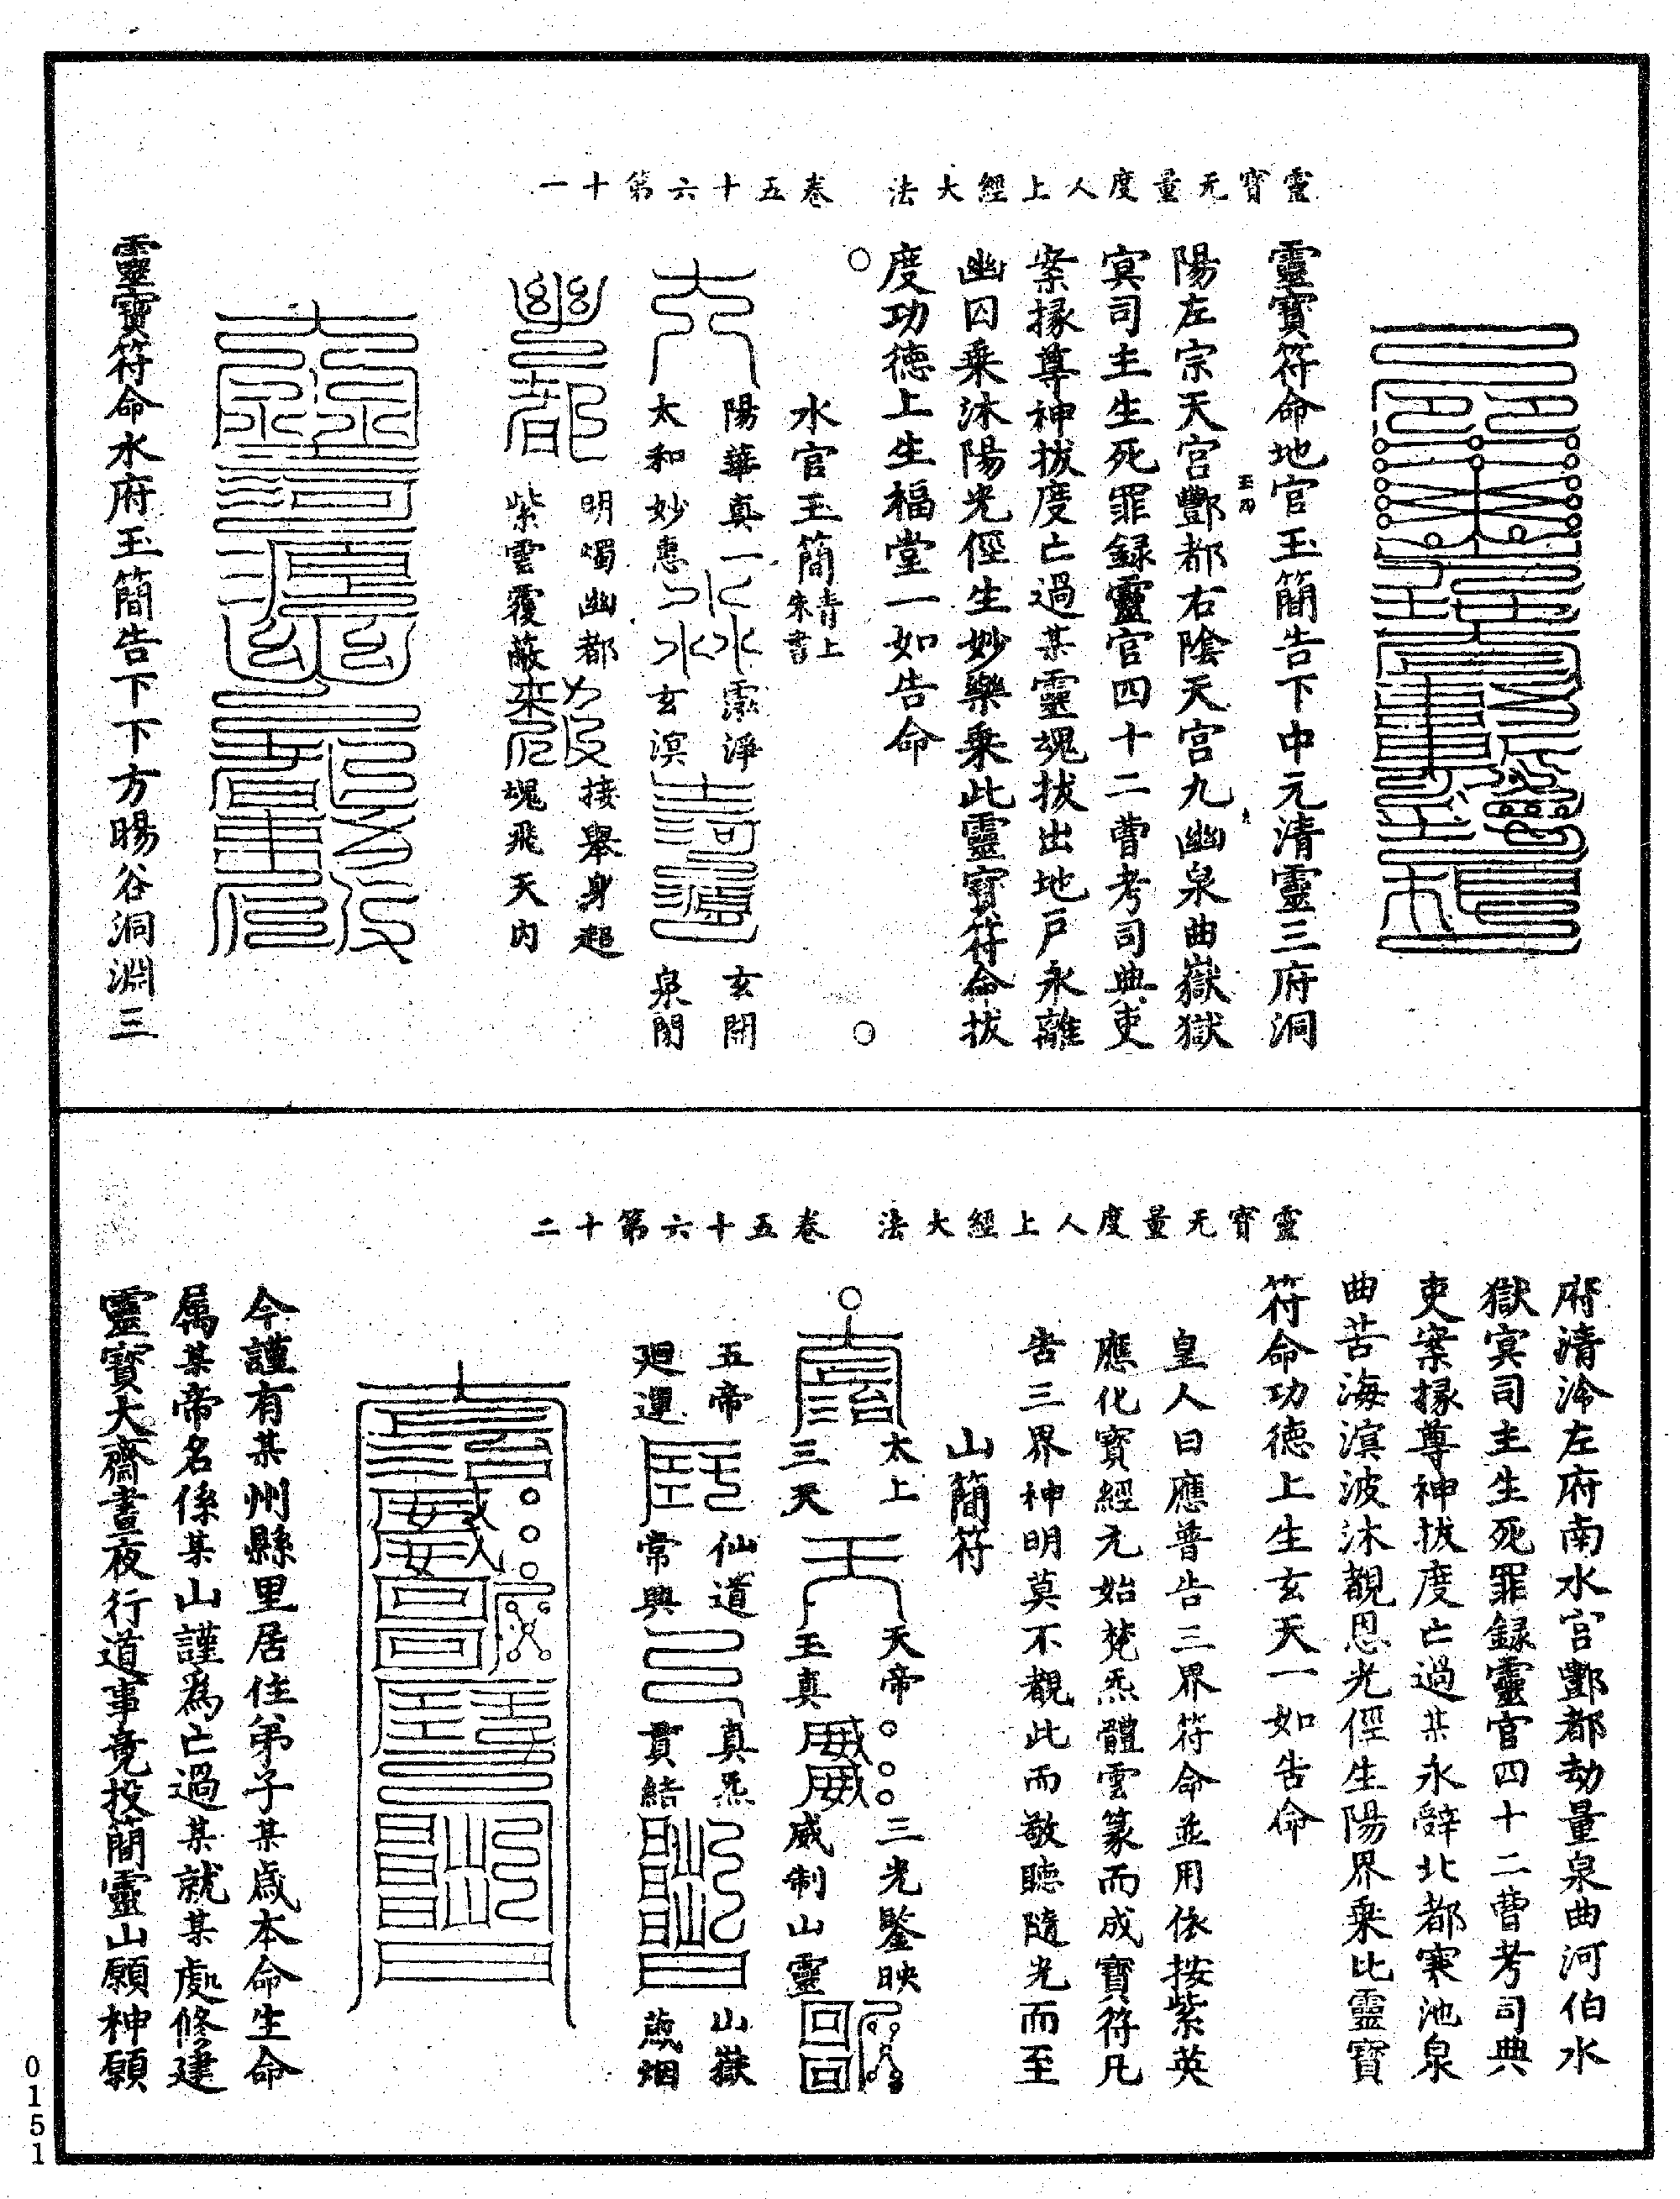 靈寶无量度人上經大法　卷五十六第十一
靈寶符命地官玉簡告下中元清靈三府洞
陽左宗天宮酆都右陰天宮九幽泉曲嶽獄
冥司主生死罪録靈官四十二曹考司典吏
案掾尊神拔度亡過某靈魂拔出地戶永離
幽囚乗沐陽光徑生妙樂乗此靈寶符命拔
度功德上生福堂一如告命
水官玉簡青上朱書
陽華真一
太和妙惠
濦淨
玄溟
玄開
泉閉
明燭幽都
紫雲覆蔽
接舉身超
魂飛天内
靈寶符命水府玉簡告下下方暘谷洞淵三
靈寶无量度人上經大法　卷五十六第十二
府清泠左府南水官酆都劫量泉曲河伯水
獄冥司主生死罪録靈官四十二曹考司典
吏案掾尊神拔度亡過某永辭北都寒池泉
曲苦海溟波沐覩恩光徑生陽界乗此靈寶
符命功德上生玄天一如告命
皇人曰應普告三界符命並用依按紫英
應化寶經元始梵炁體雲篆而成寶符凡
告三界神明莫不覩此而敬聽隨光而至
山簡符
太上
三天
天帝
玉真
三光鑒映
威制山靈
五帝
廻運
仙道
常興
真炁
貫結
山嶽
蒸烟
今謹有某州縣里居住弟子某歲本命生命
属某帝名係某山謹爲亡過某就某處修建
靈寶大齋晝夜行道事竟投簡靈山願神願
0151